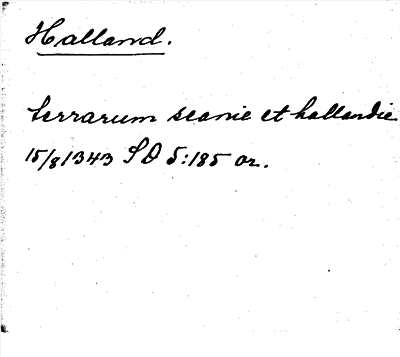 Halland.
terrarum scanie et hallandie
15/8 1343 SD 5:185 or.